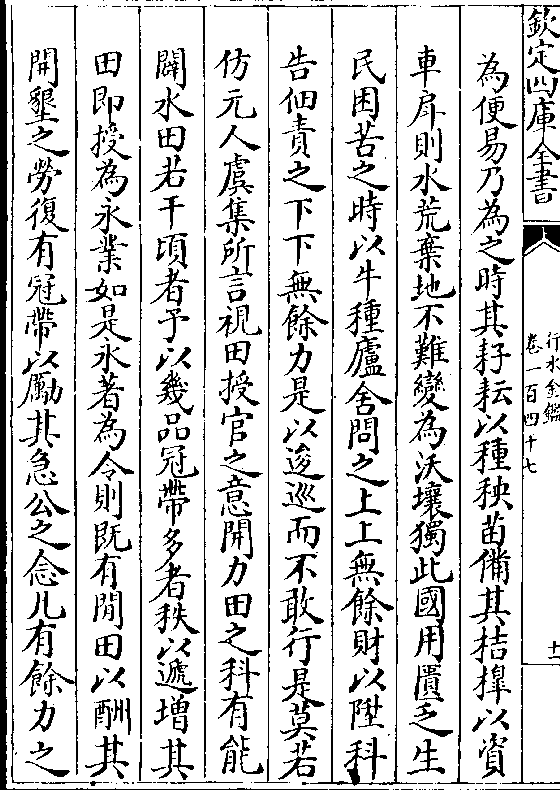 欽定四庫全書
行水金鑑
卷一百四十七
十一
為便易乃為之時其耔耘以種秧苗備其桔槹以資
車戽則水荒棄地不難變為沃壤獨此國用匱乏生
民困苦之時以牛種廬舍問之上上無餘財以陞科
告佃責之下下無餘力是以逡巡而不敢行是莫若
仿元人虞集所言視田授官之意開力田之科有能
闢水田若干頃者予以幾品冠帶多者秩以遞增其
田即授為永業如是永著為令則既有閒田以酬其
開墾之勞復有冠帶以勵其急公之念凡有餘力之